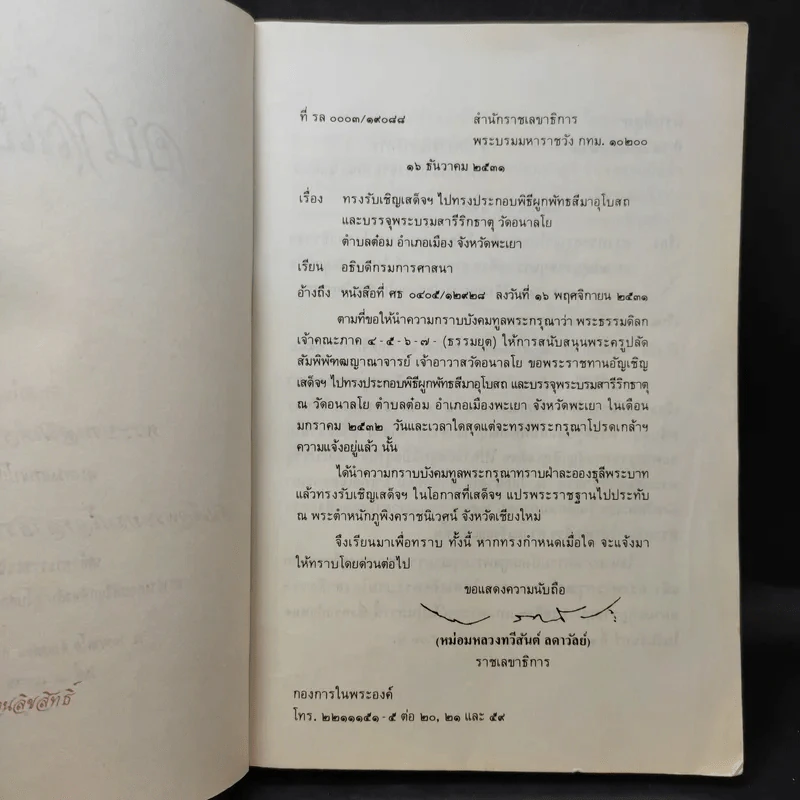 ที่ รล ๐๐๐๓/๑๙๐๘๘
สำนักราชเลขาธิการ
พระบรมมหาราชวัง กทม. ๑๐๒๐๐
๑๖ ธันวาคม ๒๕๓๑
เรื่อง ทรงรับเชิญเสด็จฯ ไปทรงประกอบพิธีผูกพัทธสีมาอุโบสถ
และบรรจุพระบรมสารีริกธาตุ วัดอนาลโย
ตำบลต๋อม อำเภอเมือง จังหวัดพะเยา
เรียน อธิบดีกรมการศาสนา
อ้างถึง หนังสือที่ ศธ ๐๔๐๕/๑๒๙๒๘ ลงวันที่ ๑๖ พฤศจิกายน ๒๕๓๑
ตามที่ขอให้นำความกราบบังคมทูลพระกรุณาว่า พระธรรมดิลก
เจ้าคณะภาค ๔-๕-๖-๗- (ธรรมยุต) ให้การสนับสนุนพระครูปลัด
สัมพิพัฒฒญาณาจารย์ เจ้าอาวาสวัดอนาลโย ขอพระราชทานอัญเชิญ
เสด็จฯ ไปทรงประกอบพิธีผูกพัทธสีมาอุโบสถ และบรรจุพระบรมสารีริกธาตุ
ณ วัดอนาลโย ตำบลต๋อม อำเภอเมืองพะเยา จังหวัดพะเยา ในเดือน
มกราคม ๒๕๓๒ วันและเวลาใดสุดแต่จะทรงพระกรุณาโปรดเกล้าฯ
ความแจ้งอยู่แล้ว นั้น
ได้นำความกราบบังคมทูลพระกรุณาทราบฝ่าละอองธุลีพระบาท
แล้วทรงรับเชิญเสด็จฯ ในโอกาสที่เสด็จฯ แปรพระราชฐานไปประทับ
ณ พระตำหนักภูพิงคราชนิเวศน์ จังหวัดเชียงใหม่
จึงเรียนมาเพื่อทราบ ทั้งนี้ หากทรงกำหนดเมื่อใด จะแจ้งมา
ให้ทราบโดยด่วนต่อไป
ขอแสดงความนับถือ
(หม่อมหลวงทวีสันต์ ลดาวัลย์)
ราชเลขาธิการ
กองการในพระองค์
โทร. ๒๒๑๑๑๕๑-๕ ต่อ ๒๐, ๒๑ และ ๕๙